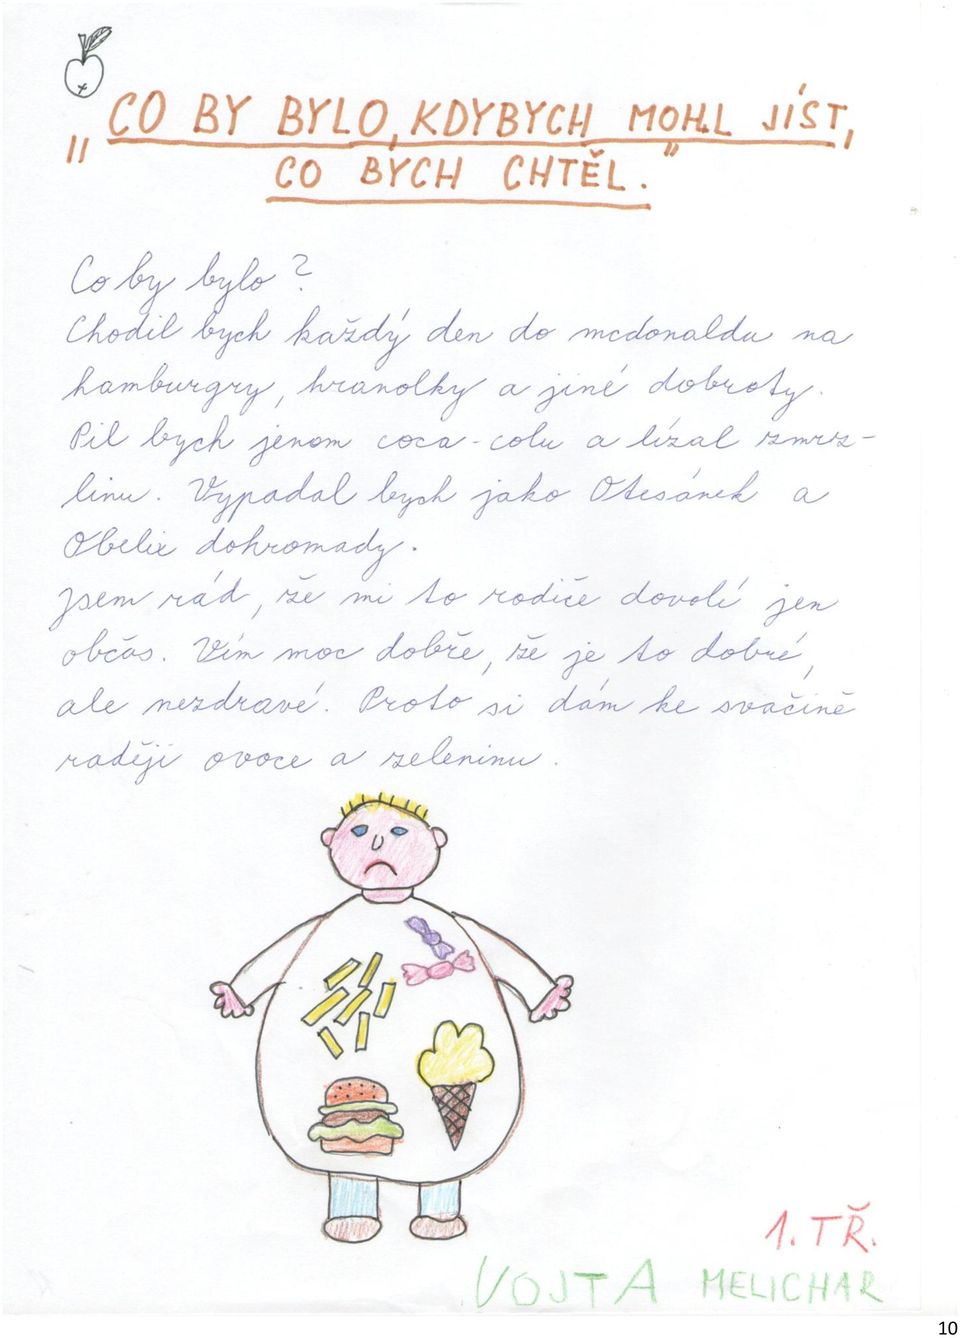 „CO BY BYLO, KDYBYCH MOHL JÍST,
CO BYCH CHTĚL."
Co by bylo?
Chodil bych každý den do mcdonaldu na
hamburgry, hranolky a jiné dobroty.
Pil bych jenom coca-colu a lízal zmrz-
linu. Vypadal bych jako Otesánek a
Obelix dohromady.
Jsem rád, že mi to rodiče dovolí jen
občas. Vím moc dobře, že je to dobré,
ale nezdravé. Proto si dám ke svačině
raději ovoce a zeleninu.
1. TŘ.
VOJTA MELICHAR
10